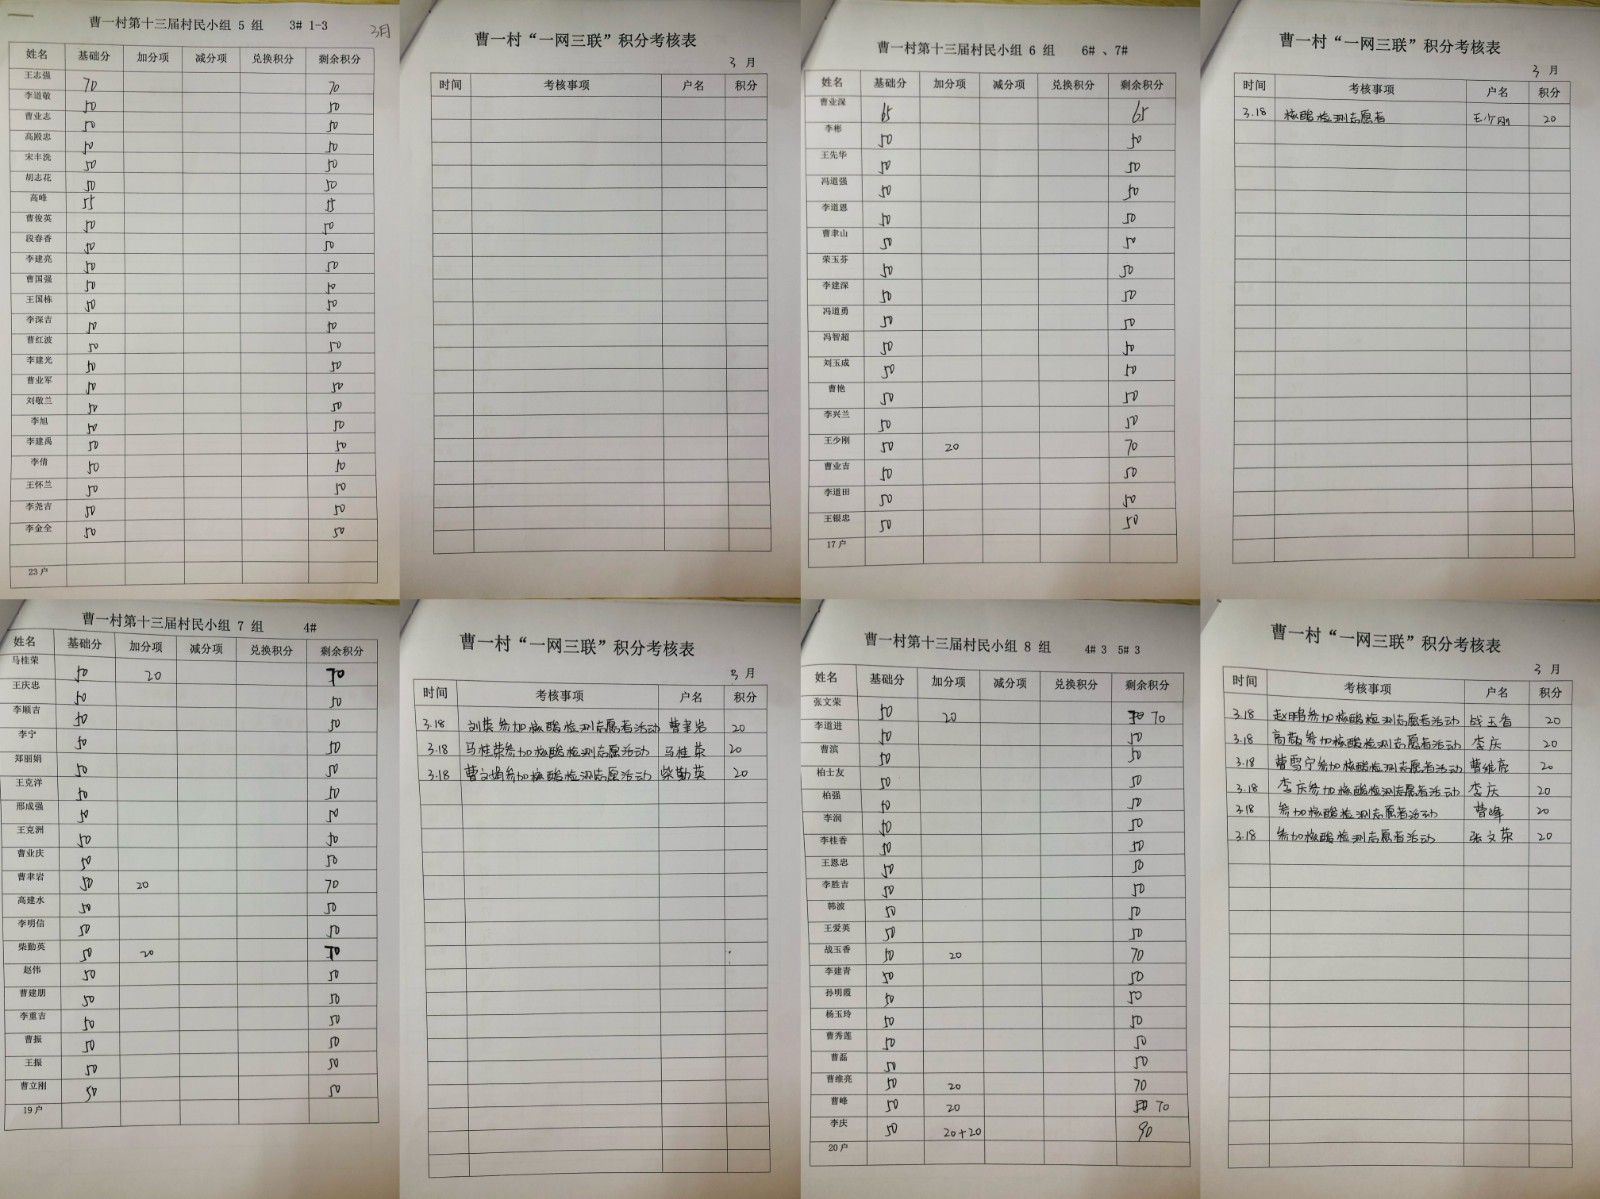 曹一村第十三届村民小组 5 组 3# 1-3 3月
姓名 基础分 加分项 减分项 兑换积分 剩余积分
王志强 70 70
李道敬 50 50
曹业志 50 50
高殿忠 50 50
宋丰洗 50 50
胡志花 50 50
高峰 55 55
曹俊英 50 50
段春香 50 50
李建亮 50 50
曹国强 50 50
王国栋 50 50
李深吉 50 50
曹红波 50 50
李建光 50 50
曹业军 50 50
刘敬兰 50 50
李旭 50 50
李建禹 50 50
李倩 50 50
王怀兰 50 50
李尧吉 50 50
李金全 50 50
23户
曹一村“一网三联”积分考核表
3 月
时间 考核事项 户名 积分
曹一村第十三届村民小组 6 组 6# 、7#
姓名 基础分 加分项 减分项 兑换积分 剩余积分
曹业深 65 65
李彬 50 50
王先华 50 50
冯道强 50 50
李道恩 50 50
曹聿山 50 50
荣玉芬 50 50
李建深 50 50
冯道勇 50 50
冯智超 50 50
刘玉成 50 50
曹艳 50 50
李兴兰 50 50
王少刚 50 20 70
曹业吉 50 50
李道田 50 50
王银忠 50 50
17户
曹一村“一网三联”积分考核表
3 月
时间 考核事项 户名 积分
3.18 核酸检测志愿者 王少刚 20
曹一村第十三届村民小组 7 组 4#
姓名 基础分 加分项 减分项 兑换积分 剩余积分
马桂荣 50 20 70
王庆忠 50 50
李顺吉 50 50
李宁 50 50
郑丽娟 50 50
王克洋 50 50
邢成强 50 50
王克洲 50 50
曹业庆 50 50
曹聿岩 50 20 70
高建水 50 50
李明信 50 50
柴勤英 50 20 70
赵伟 50 50
曹建朋 50 50
李重吉 50 50
曹振 50 50
王振 50 50
曹立刚 50 50
19户
曹一村“一网三联”积分考核表
3 月
时间 考核事项 户名 积分
3.18 刘英参加核酸检测志愿者活动 曹聿岩 20
3.18 马桂荣参加核酸检测志愿活动 马桂荣 20
3.18 曹文娟参加核酸检测志愿活动 柴勤英 20
曹一村第十三届村民小组 8 组 4# 3 5# 3
姓名 基础分 加分项 减分项 兑换积分 剩余积分
张文荣 50 20 70
李道进 50 50
曹滨 50 50
柏士友 50 50
柏强 50 50
李润 50 50
李桂香 50 50
王恩忠 50 50
李胜吉 50 50
韩波 50 50
王爱英 50 50
战玉香 50 20 70
李建青 50 50
孙明霞 50 50
杨玉玲 50 50
曹秀莲 50 50
曹磊 50 50
曹维亮 50 20 70
曹峰 50 20 70
李庆 50 20+20 90
20户
曹一村“一网三联”积分考核表
3 月
时间 考核事项 户名 积分
3.18 赵鹏参加核酸检测志愿者活动 战玉香 20
3.18 高敬参加核酸检测志愿者活动 李庆 20
3.18 曹雪宁参加核酸检测志愿者活动 曹维亮 20
3.18 李庆参加核酸检测志愿者活动 李庆 20
3.18 参加核酸检测志愿者活动 曹峰 20
3.18 参加核酸检测志愿者活动 张文荣 20